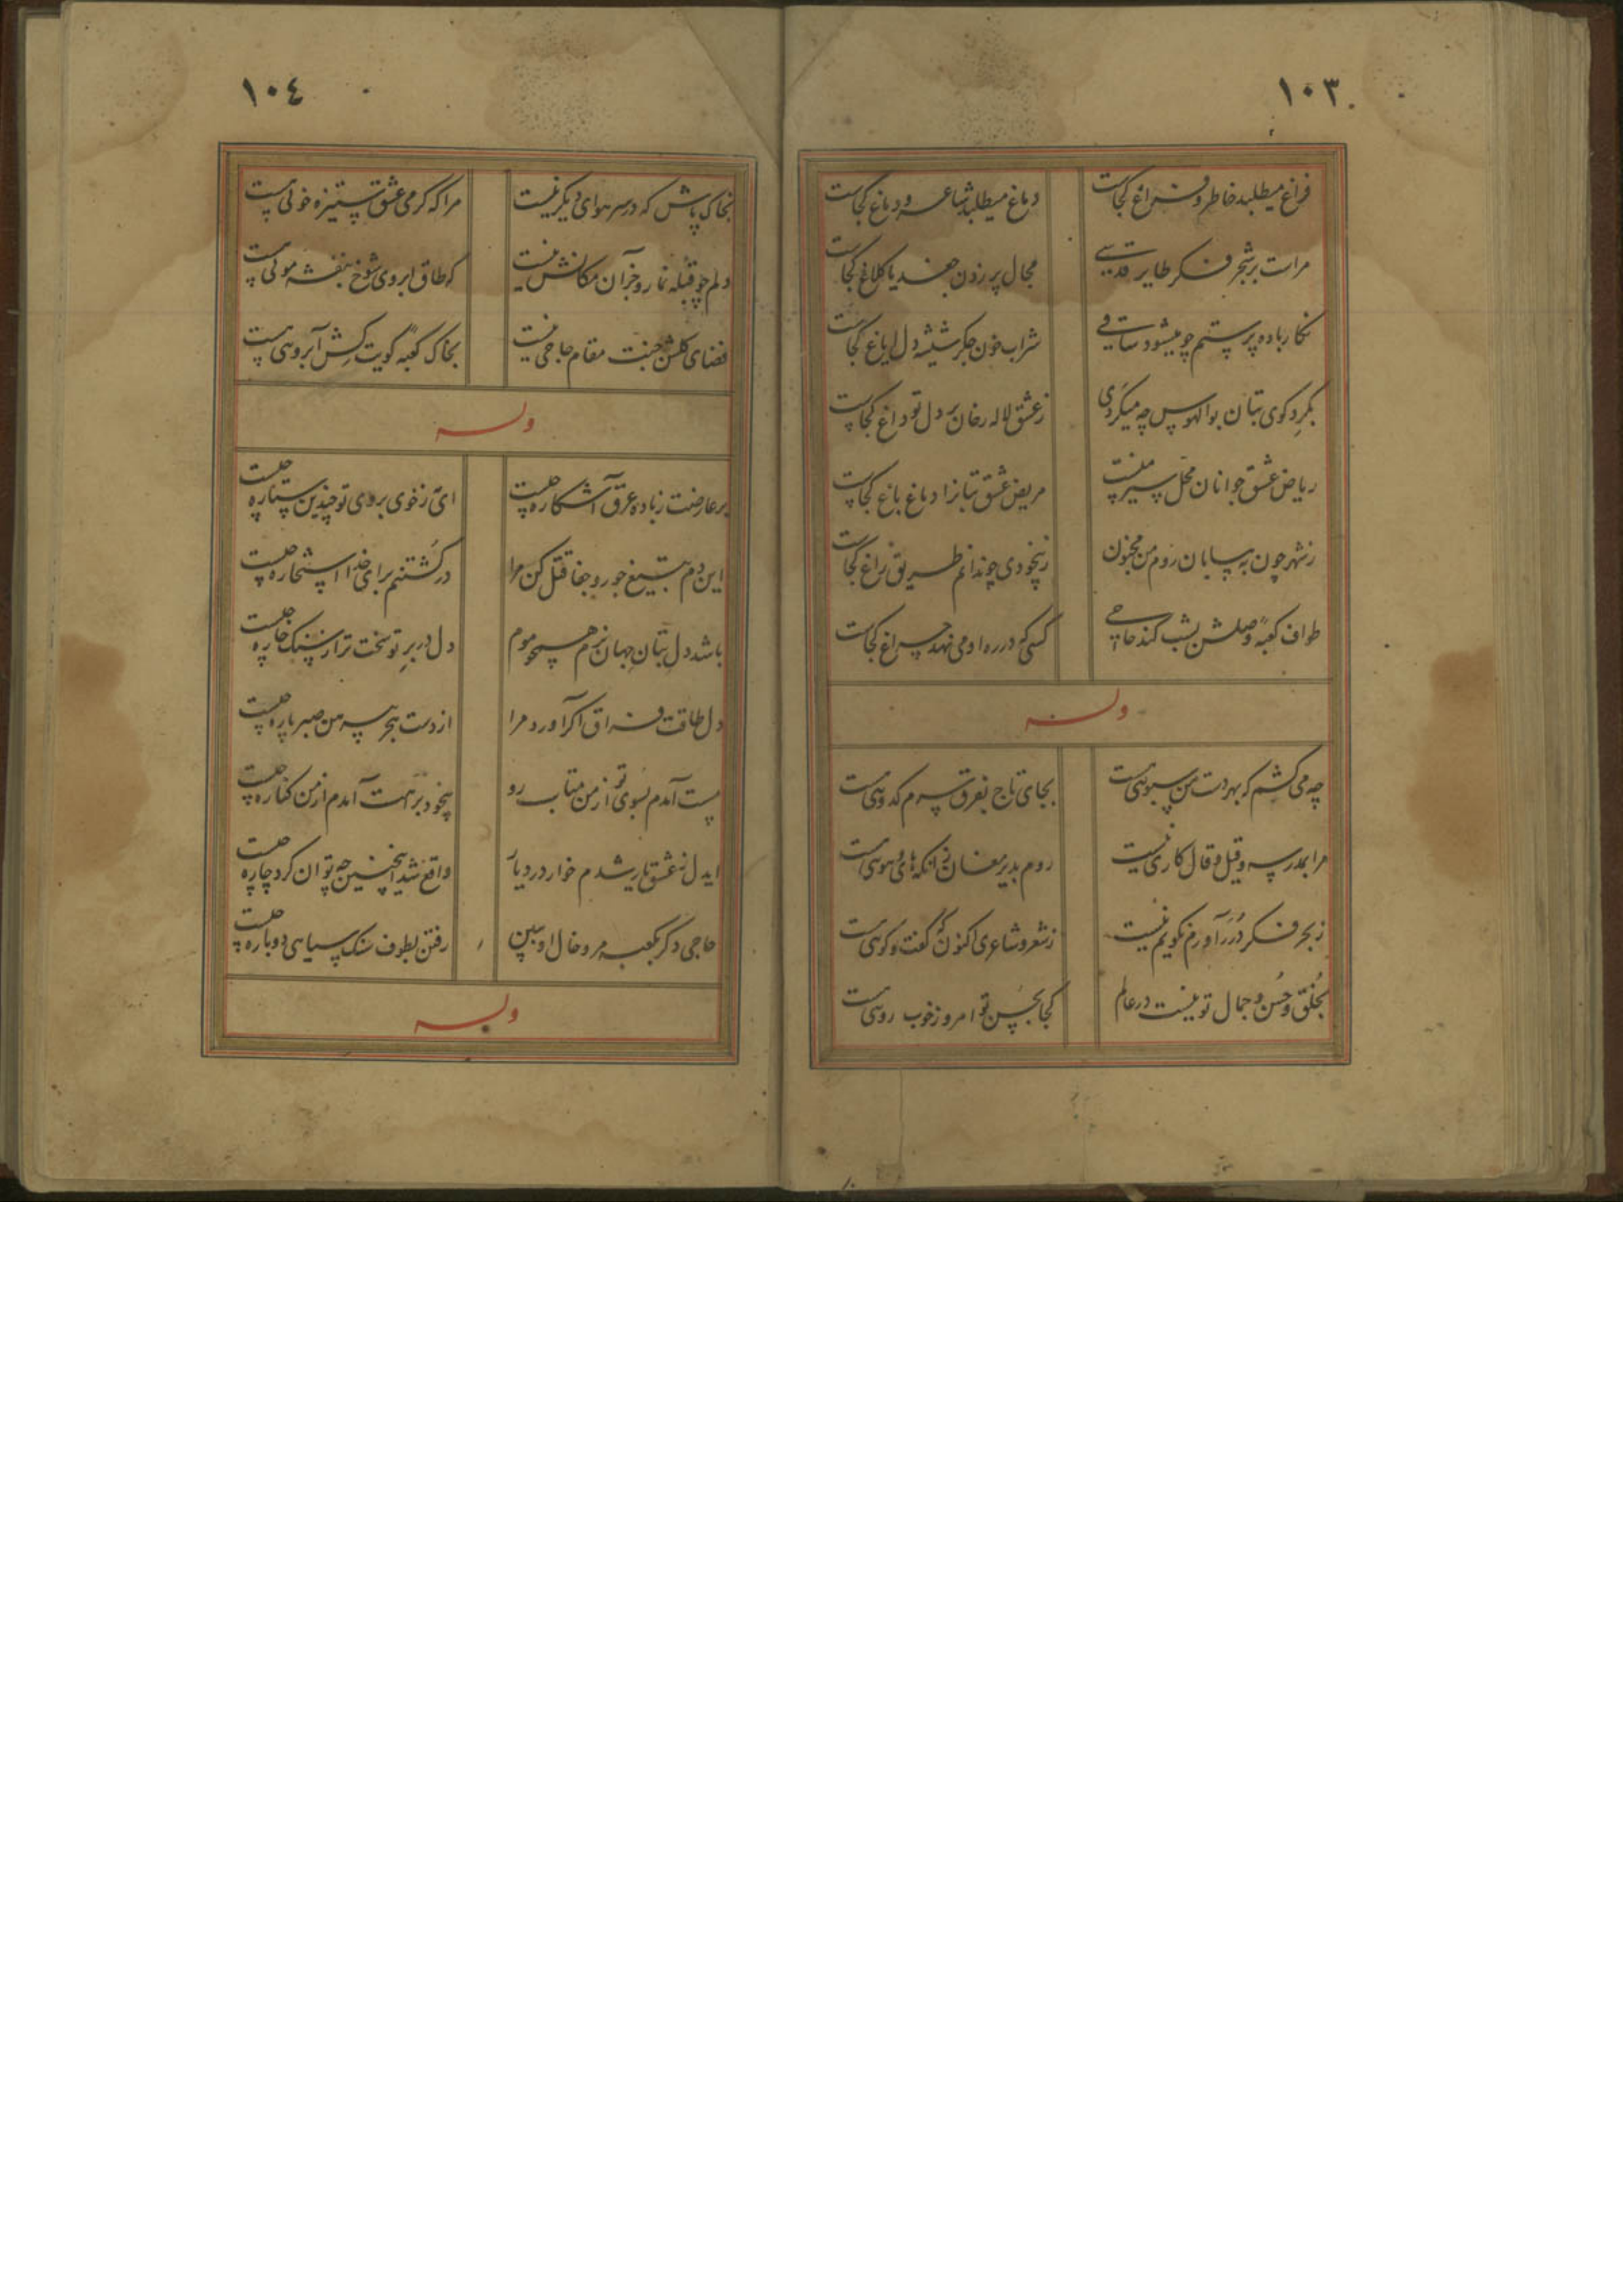 ١٠٣
فراغ میطلبد خاطر و فراغ کجاست
دماغ میطلبد شاعر و دماغ کجاست
مراست بر شجر فکر طایر قدسی
مجال پر زدن جغد یا کلاغ کجاست
نکار باده پرستم چو میشود ساقی
شراب خون جکر شیشه دل ایاغ کجاست
بکرد کوی بتان بوالهوس چه میکردی
ز عشق لاله رخان بر دل تو داغ کجاست
ریاض عشق جوانان محل سیر منست
مریض عشق بتانرا دماغ باغ کجاست
ز شهر چون به بیابان روم من مجنون
ز بیخودی چو ندانم طریق زاغ کجاست
طواف کعبه وصلش بشب کند حاجی
کسی که در ره او می نهد چراغ کجاست
وله
چه می کشم که بهر دست من سبوئی هست
بجای تاج بفرق سرم کدوئی هست
مرا بمدرسه و قیل و قال کاری نیست
روم بدیر مغان زانکه های و هوئی هست
ز بحر فکر درر آورم نکویم نیست
ز شعر و شاعری اکنون که گفت و کوئی هست
بخلق و حسن و جمال تو نیست در عالم
کجا بحسن تو امروز خوب روئی هست
١٠٤
بخاک پاش که در سر هوای دیکر نیست
مرا که کرمی عشق ستیزه خوئی هست
دلم چو قبله نما رو جز آن مکانش نیست
که طاق ابروی شوخ بنفشه موئی هست
فضای کلشن جنت مقام حاجی نیست
بخاک کعبه کویت کش آبروئی هست
وله
بر عارضت ز باده عرق آشکاره چیست
ای ز خوی بروی تو چندین ستاره چیست
این دم بتیغ جور و جفا قتل کن مرا
در کشتنم برای خدا استخاره چیست
باشد دل بتان جهان نرم همچو موم
دل در بر تو سخت تر از سنک خاره چیست
دل طاقت فراق اکر آورد مرا
از دست هجر پیرهن صبر پاره چیست
مست آمدم بسوی تو از من متاب رو
بیخود برهت آمدم از من کناره چیست
ایدل ز عشق یار شدم خوار در دیار
واقع شد اینچنین چه توان کرد چاره چیست
حاجی دکر بکعبه مرو خال او ببین
رفتن بطوف سنک سیاهی دوباره چیست
وله